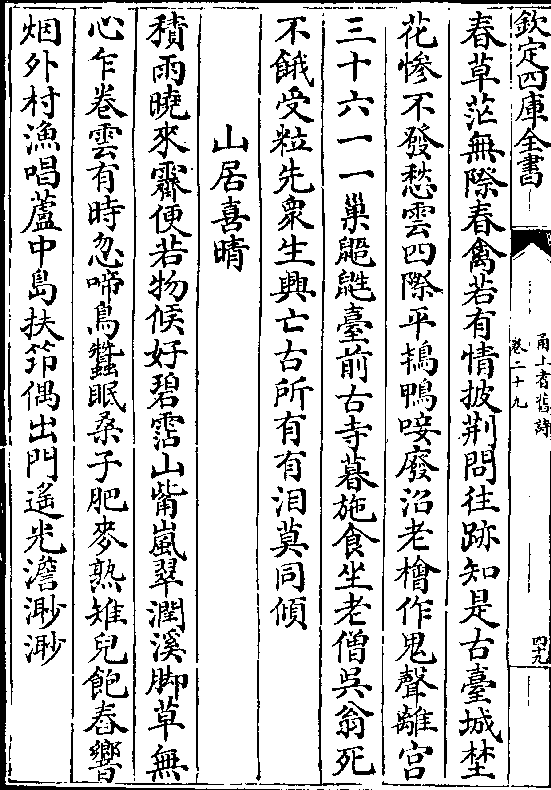 欽定四庫全書
甬上耆舊詩
卷二十九
四十九
春草茫無際春禽若有情披荆問往跡知是古臺城埜
花慘不發愁雲四際平鵠鴨唼廢沼老檜作鬼聲離宫
三十六一一巢鼯鼪臺前古寺暮施食坐老僧吳翁死
不餓受粒先衆生興亡古所有有泪莫同傾
山居喜晴
積雨曉來霽便若物候好碧霑山觜嵐翠潤溪脚草無
心乍卷雲有時忽啼鳥蠶眠桑子肥麥熟雉兒飽舂響
烟外村漁唱蘆中島扶筇偶出門遥光澹渺渺